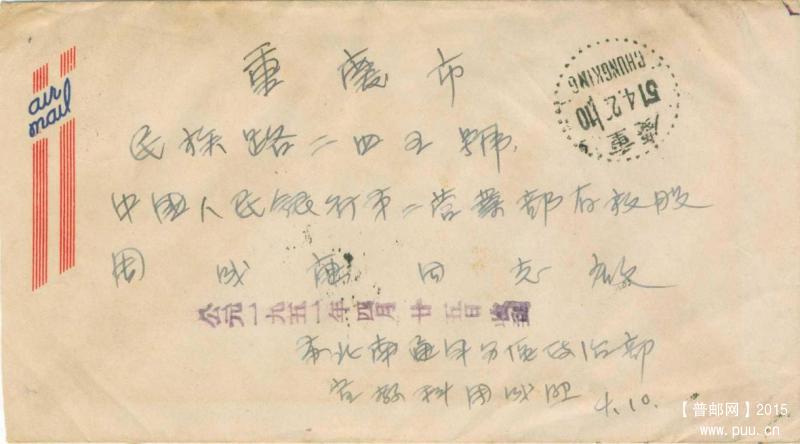 air
mail
重慶市
民族路二四五號
中國人民銀行第二營業部存放股
周成 同志 啟
公元一九五一年四月廿五日收到
南通軍分區政治部
宣教科周成
4.10.
CHUNGKING
51.4.2 10
重慶
【普邮网】2015
www.puu.cn